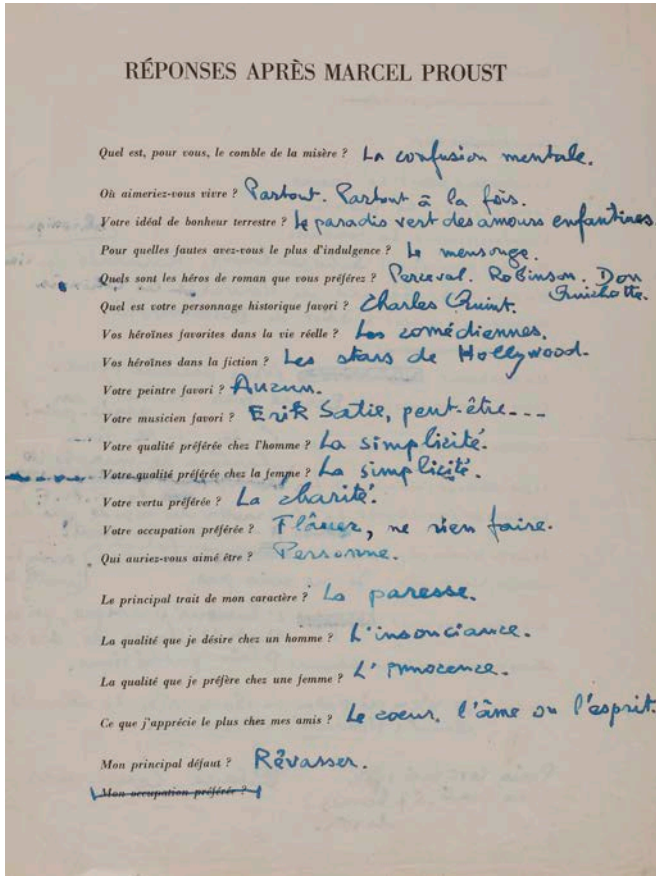 RÉPONSES APRÈS MARCEL PROUST
Quel est, pour vous, le comble de la misère ? La confusion mentale.
Où aimeriez-vous vivre ? Partout. Partout à la fois.
Votre idéal de bonheur terrestre ? Le paradis vert des amours enfantines
Pour quelles fautes avez-vous le plus d'indulgence ? Le mensonge.
Quels sont les héros de roman que vous préférez ? Perceval. Robinson. Don
Quichotte.
Quel est votre personnage historique favori ? Charles Quint.
Vos héroïnes favorites dans la vie réelle ? Les comédiennes.
Vos héroïnes dans la fiction ? Les stars de Hollywood.
Votre peintre favori ? Aucun.
Votre musicien favori ? Erik Satie, peut-être---
Votre qualité préférée chez l'homme ? La simplicité.
Votre qualité préférée chez la femme ? La simplicité.
Votre vertu préférée ? La charité.
Votre occupation préférée ? Flâner, ne rien faire.
Qui auriez-vous aimé être ? Personne.
Le principal trait de mon caractère ? La paresse.
La qualité que je désire chez un homme ? L'insouciance.
La qualité que je préfère chez une femme ? L'innocence.
Ce que j'apprécie le plus chez mes amis ? Le coeur, l'âme ou l'esprit.
Mon principal défaut ? Rêvasser.
Mon occupation préférée ?